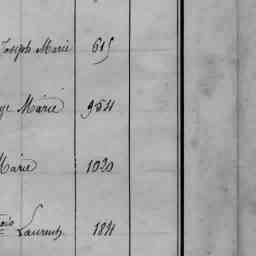 Joseph Marie 615
Marie 954
Marie 1020
Laurent 184